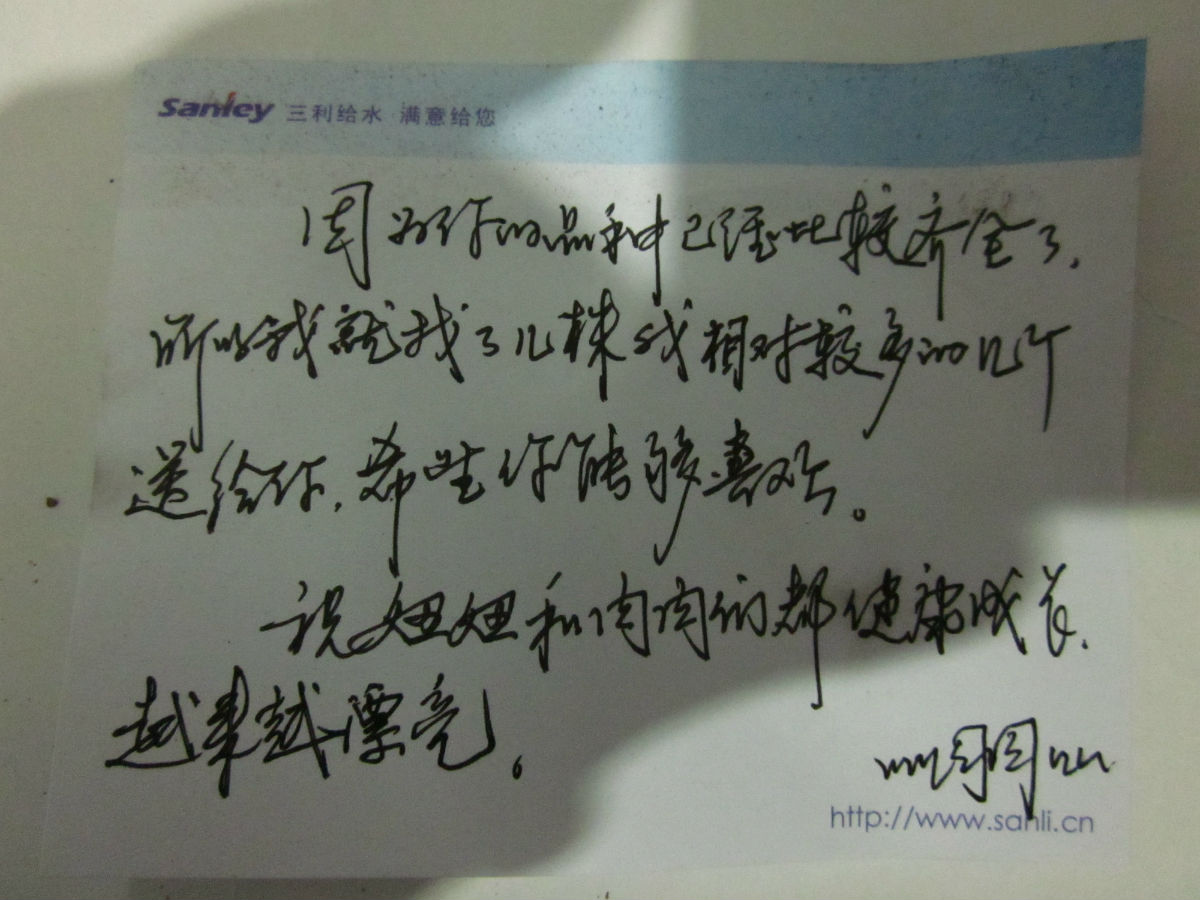 Sanley 三利给水 满意给您
因为你的品种已经比较齐全了,
所以我就找了几株我相对较多的几个
送给你,希望你能够喜欢。
祝妞妞和肉肉们都健康成长,
越来越漂亮。
http://www.sanli.cn